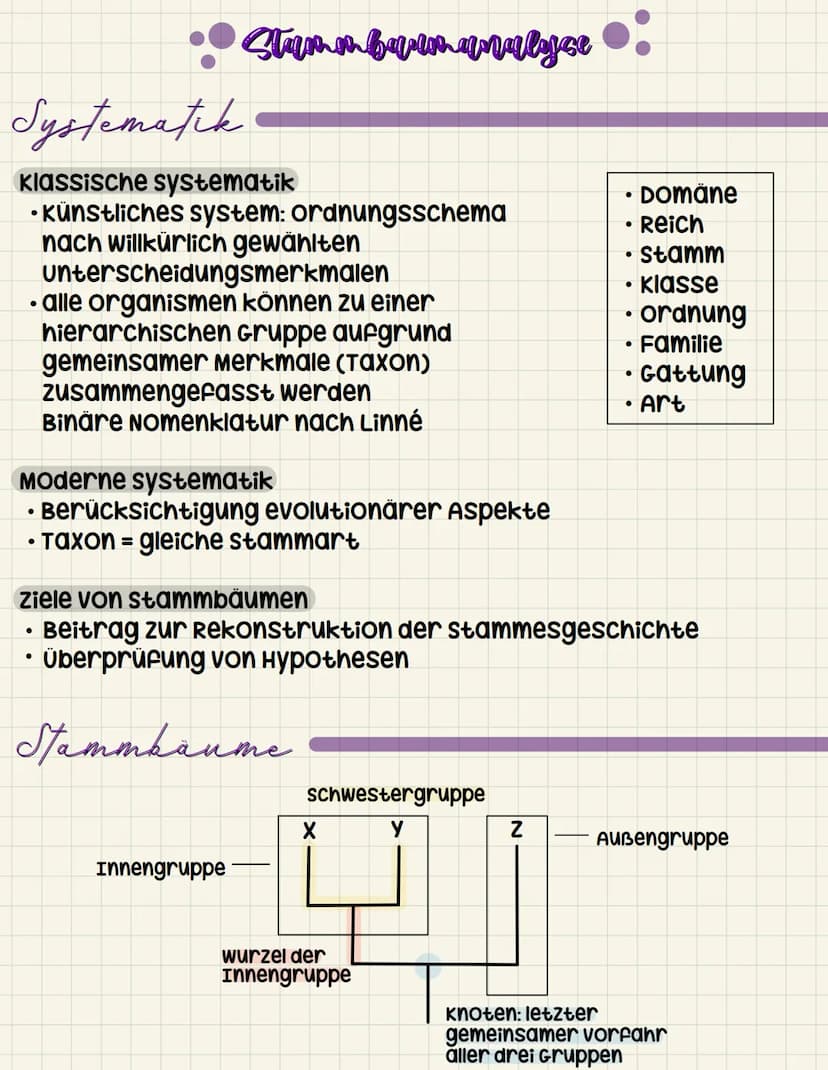 Stammbaumanalyse
Systematik
Klassische Systematik
• Künstliches System: Ordnungsschema
nach willkürlich gewählten
Unterscheidungsmerkmalen
• alle Organismen können zu einer
hierarchischen Gruppe aufgrund
gemeinsamer Merkmale (Taxon)
zusammengefasst werden
Binäre Nomenklatur nach Linné
• Domäne
• Reich
• Stamm
• Klasse
• Ordnung
• Familie
• Gattung
• Art
Moderne Systematik
• Berücksichtigung evolutionärer Aspekte
• Taxon = gleiche Stammart
Ziele von Stammbäumen
• Beitrag zur Rekonstruktion der Stammesgeschichte
• Überprüfung von Hypothesen
Stammbäume
Schwestergruppe
X Y Z
Außengruppe
Innengruppe
Wurzel der
Innengruppe
Knoten: letzter
gemeinsamer Vorfahr
aller drei Gruppen